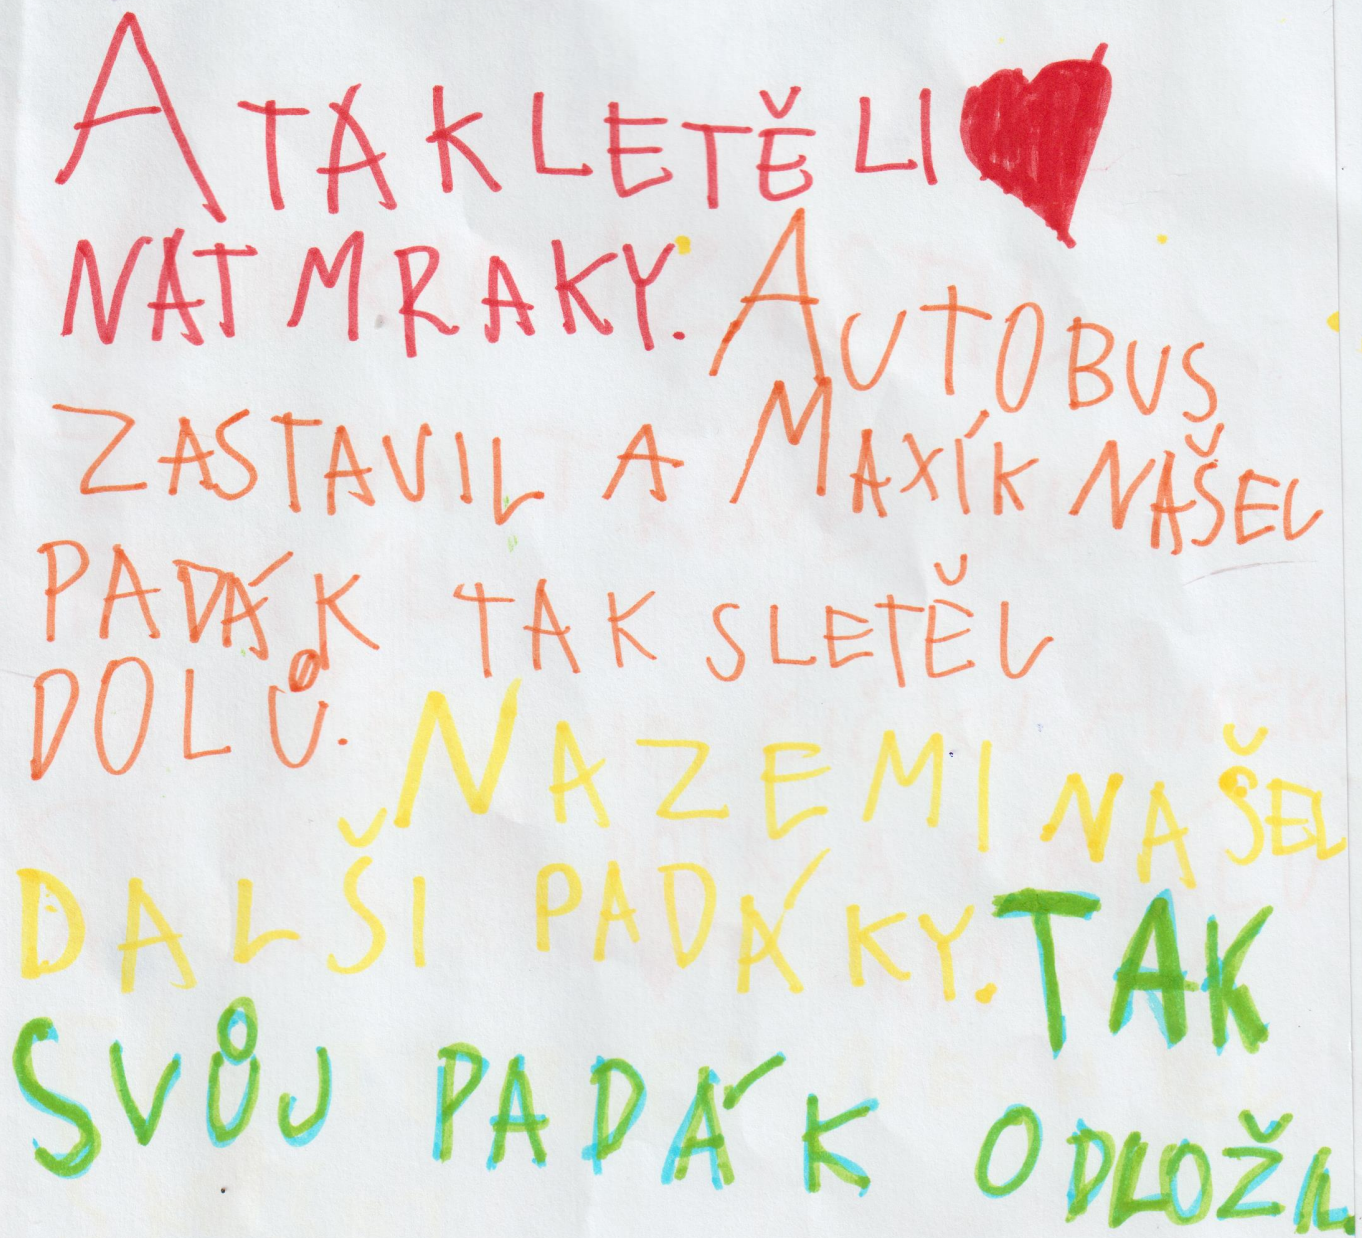 A TAK LETĚLI
NAT MRAKY. AUTOBUS
ZASTAVIL A MAXÍK NAŠEL
PADÁK TAK SLETĚL
DOLŮ. NA ZEMI NAŠEL
DALŠI PADÁKY. TAK
SVŮJ PADÁK ODLOŽIL